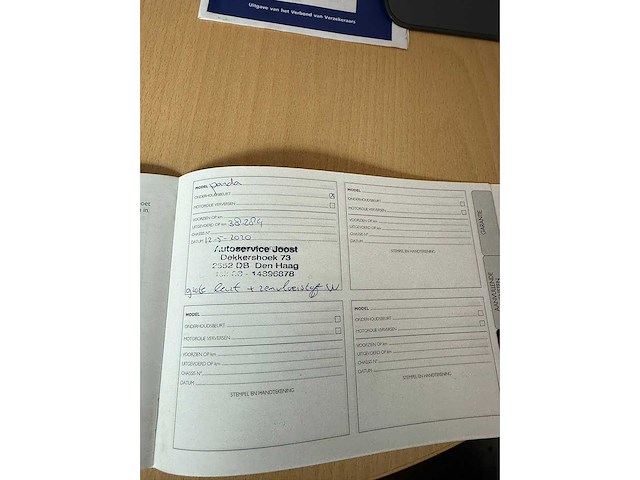 Uitgave van het Verbond van Verzekeraars
MODEL panda
ONDERHOUDSBEURT
MOTOROLIE VERVERSEN
VOORZIEN OP km
UITGEVOERD OP km 38284
CHASSIS N°
DATUM 12-5-2020
Autoservice Joost
Dekkershoek 73
2552 DB Den Haag
14896878
grote beurt +
MODEL
ONDERHOUDSBEURT
MOTOROLIE VERVERSEN
VOORZIEN OP km
UITGEVOERD OP km
CHASSIS N°
DATUM
STEMPEL EN HANDTEKENING
MODEL
ONDERHOUDSBEURT
MOTOROLIE VERVERSEN
VOORZIEN OP km
UITGEVOERD OP km
CHASSIS N°
DATUM
STEMPEL EN HANDTEKENING
MODEL
ONDERHOUDSBEURT
MOTOROLIE VERVERSEN
VOORZIEN OP km
UITGEVOERD OP km
CHASSIS N°
DATUM
STEMPEL EN HANDTEKENING
GARANTIE
AANVULLENDE